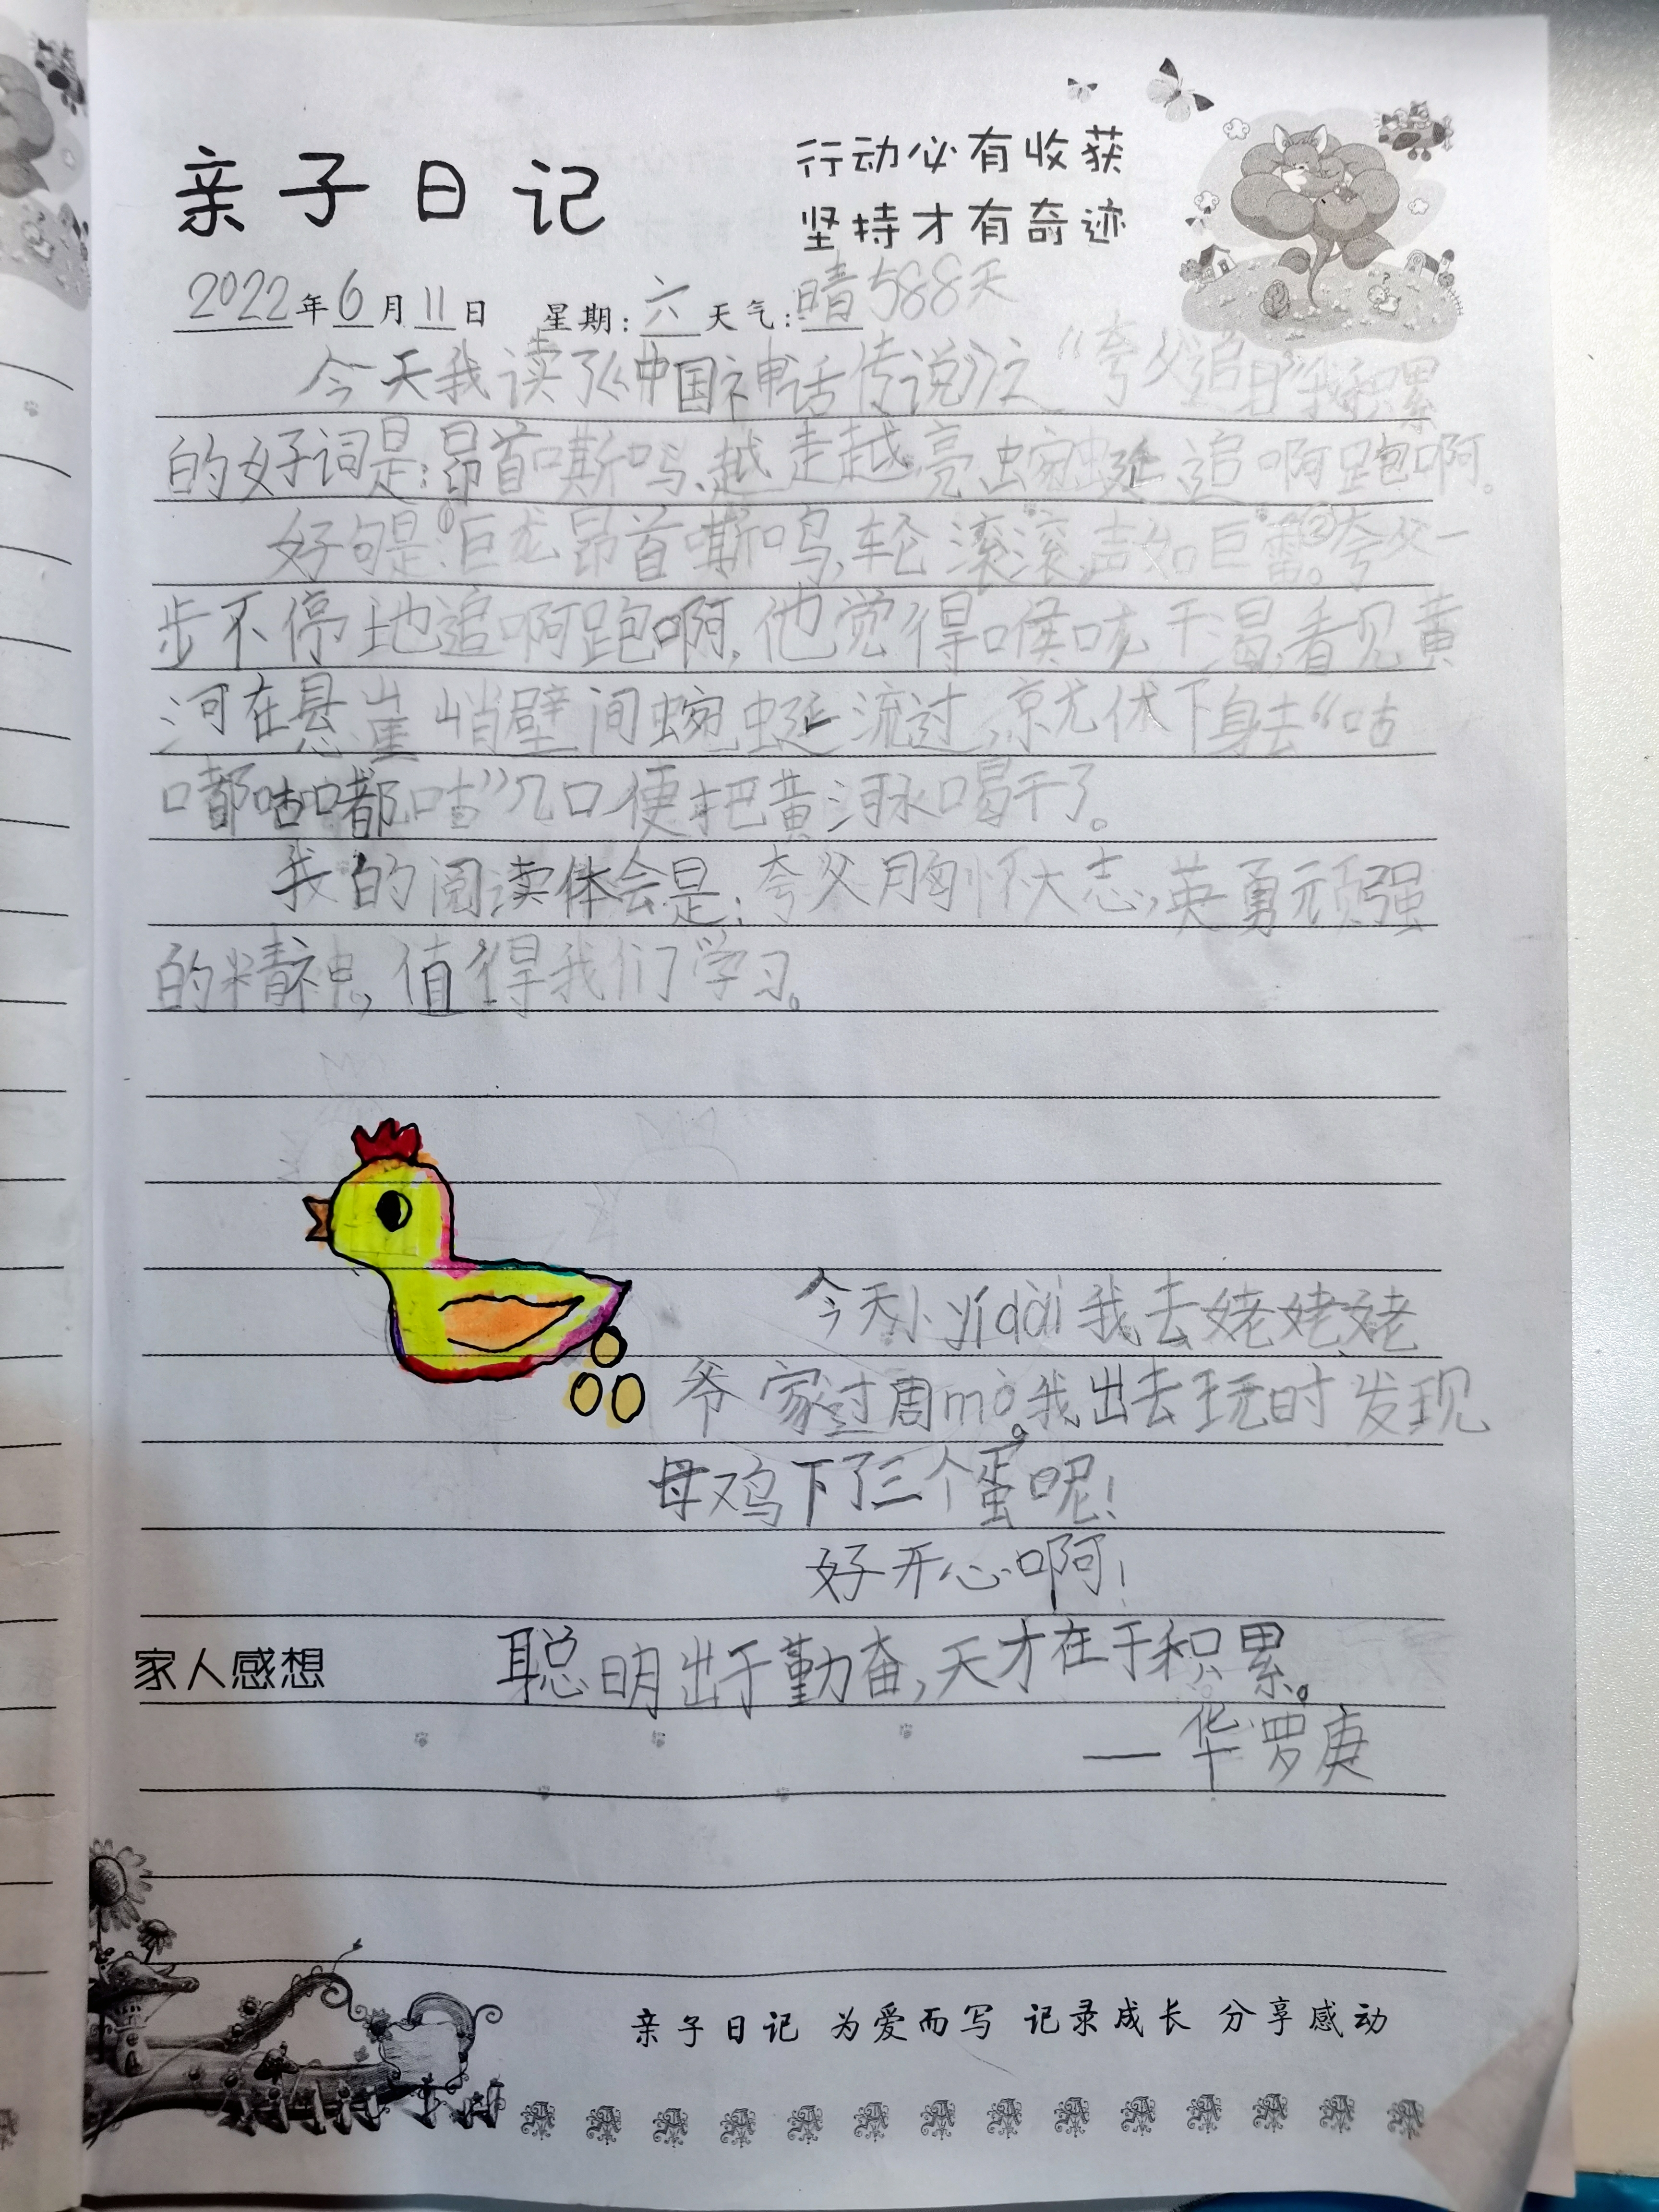 亲子日记
行动必有收获
坚持才有奇迹
2022年6月11日 星期:六 天气:晴 588天
今天我读了《中国神话传说》之“夸父追日”我积累
的好词是:昂首嘶鸣、越走越亮、蜿蜒、追啊跑啊。
好句是:①巨龙昂首嘶鸣,车轮滚滚,声如巨雷。②夸父一
步不停地追啊跑啊,他觉得喉咙干渴,看见黄
河在悬崖峭壁间蜿蜒流过,就伏下身去“咕
嘟咕嘟咕”几口便把黄河水喝干了。
我的阅读体会是:夸父胸怀大志,英勇顽强
的精神,值得我们学习。
今天小yí dài我去姥姥姥
爷家过周mò。我出去玩时发现
母鸡下了三个蛋呢!
好开心啊!
家人感想 聪明出于勤奋,天才在于积累。
—华罗庚
亲子日记 为爱而写 记录成长 分享感动